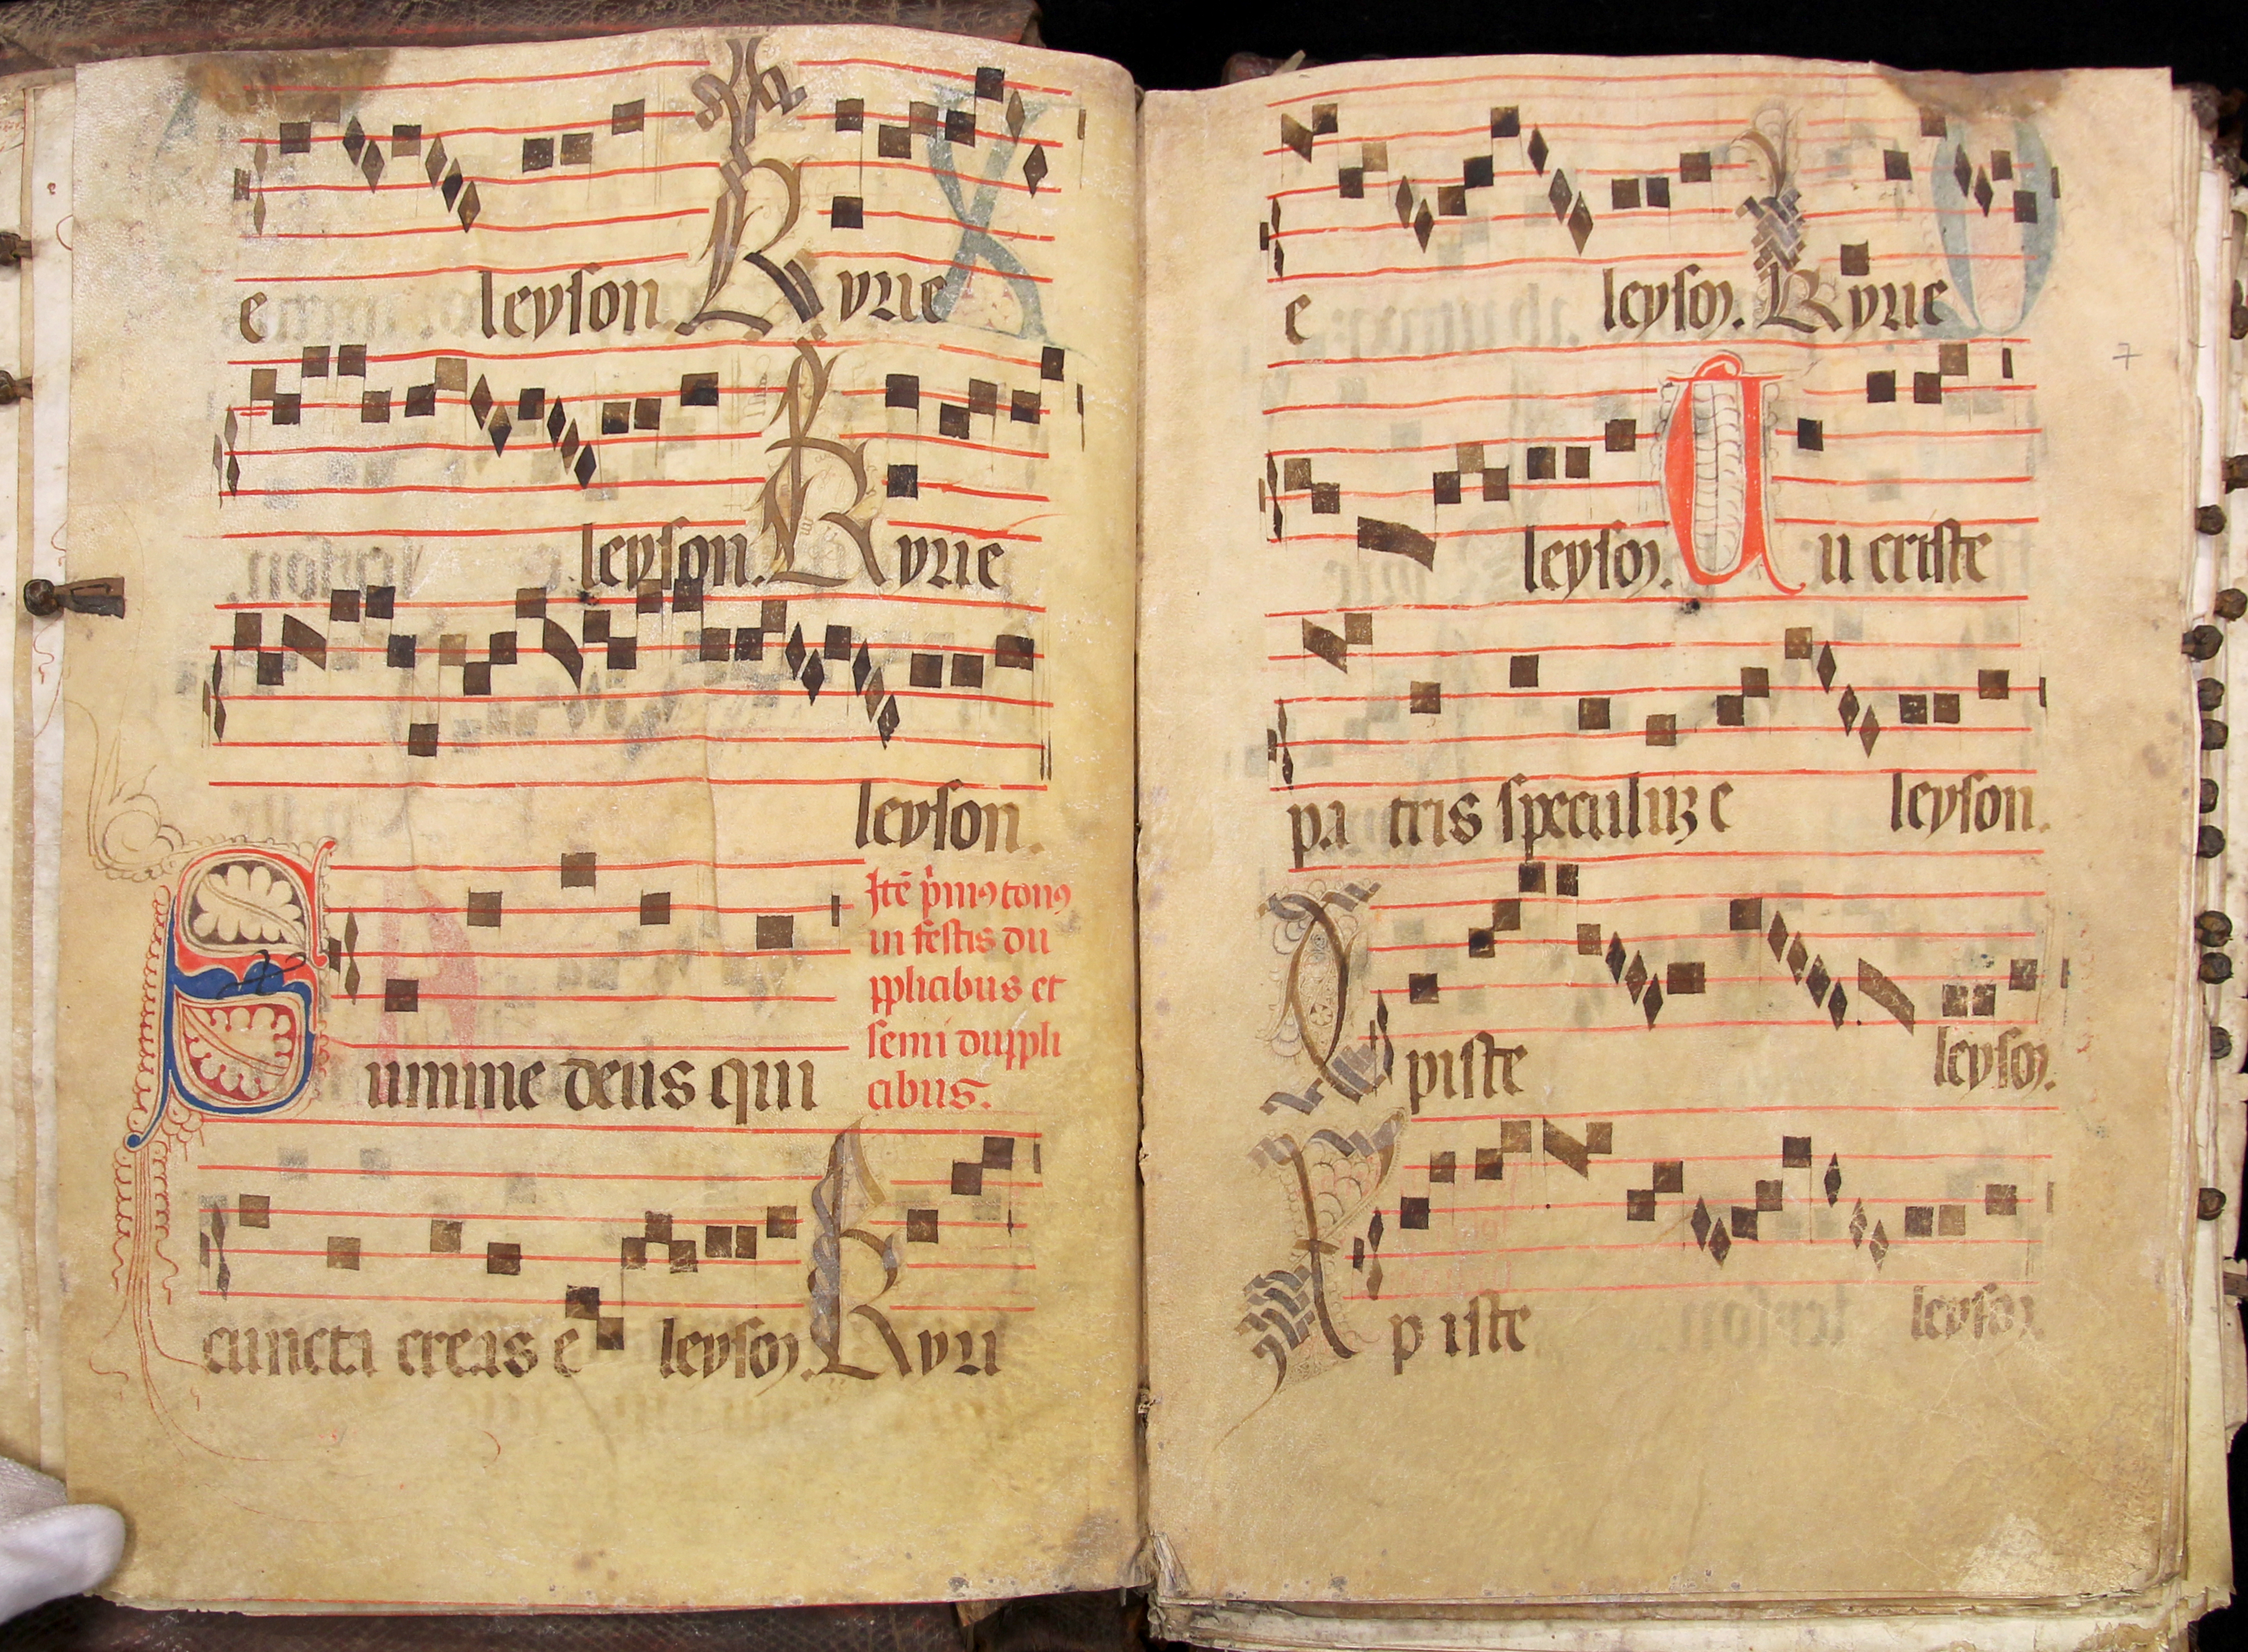 e leyson Kyrie
leyson. Kyrie
leyson.
Itē p̄mꝰ tonꝰ
in festis du
pplicibus et
semi duppli
cibus.
Summe deus qui
cuncta creas e leyson. Kyri
e leyson. Kyrie
7
leyson. Qui criste
patris speculuz e leyson.
Xpiste leyson.
Xpiste leyson.